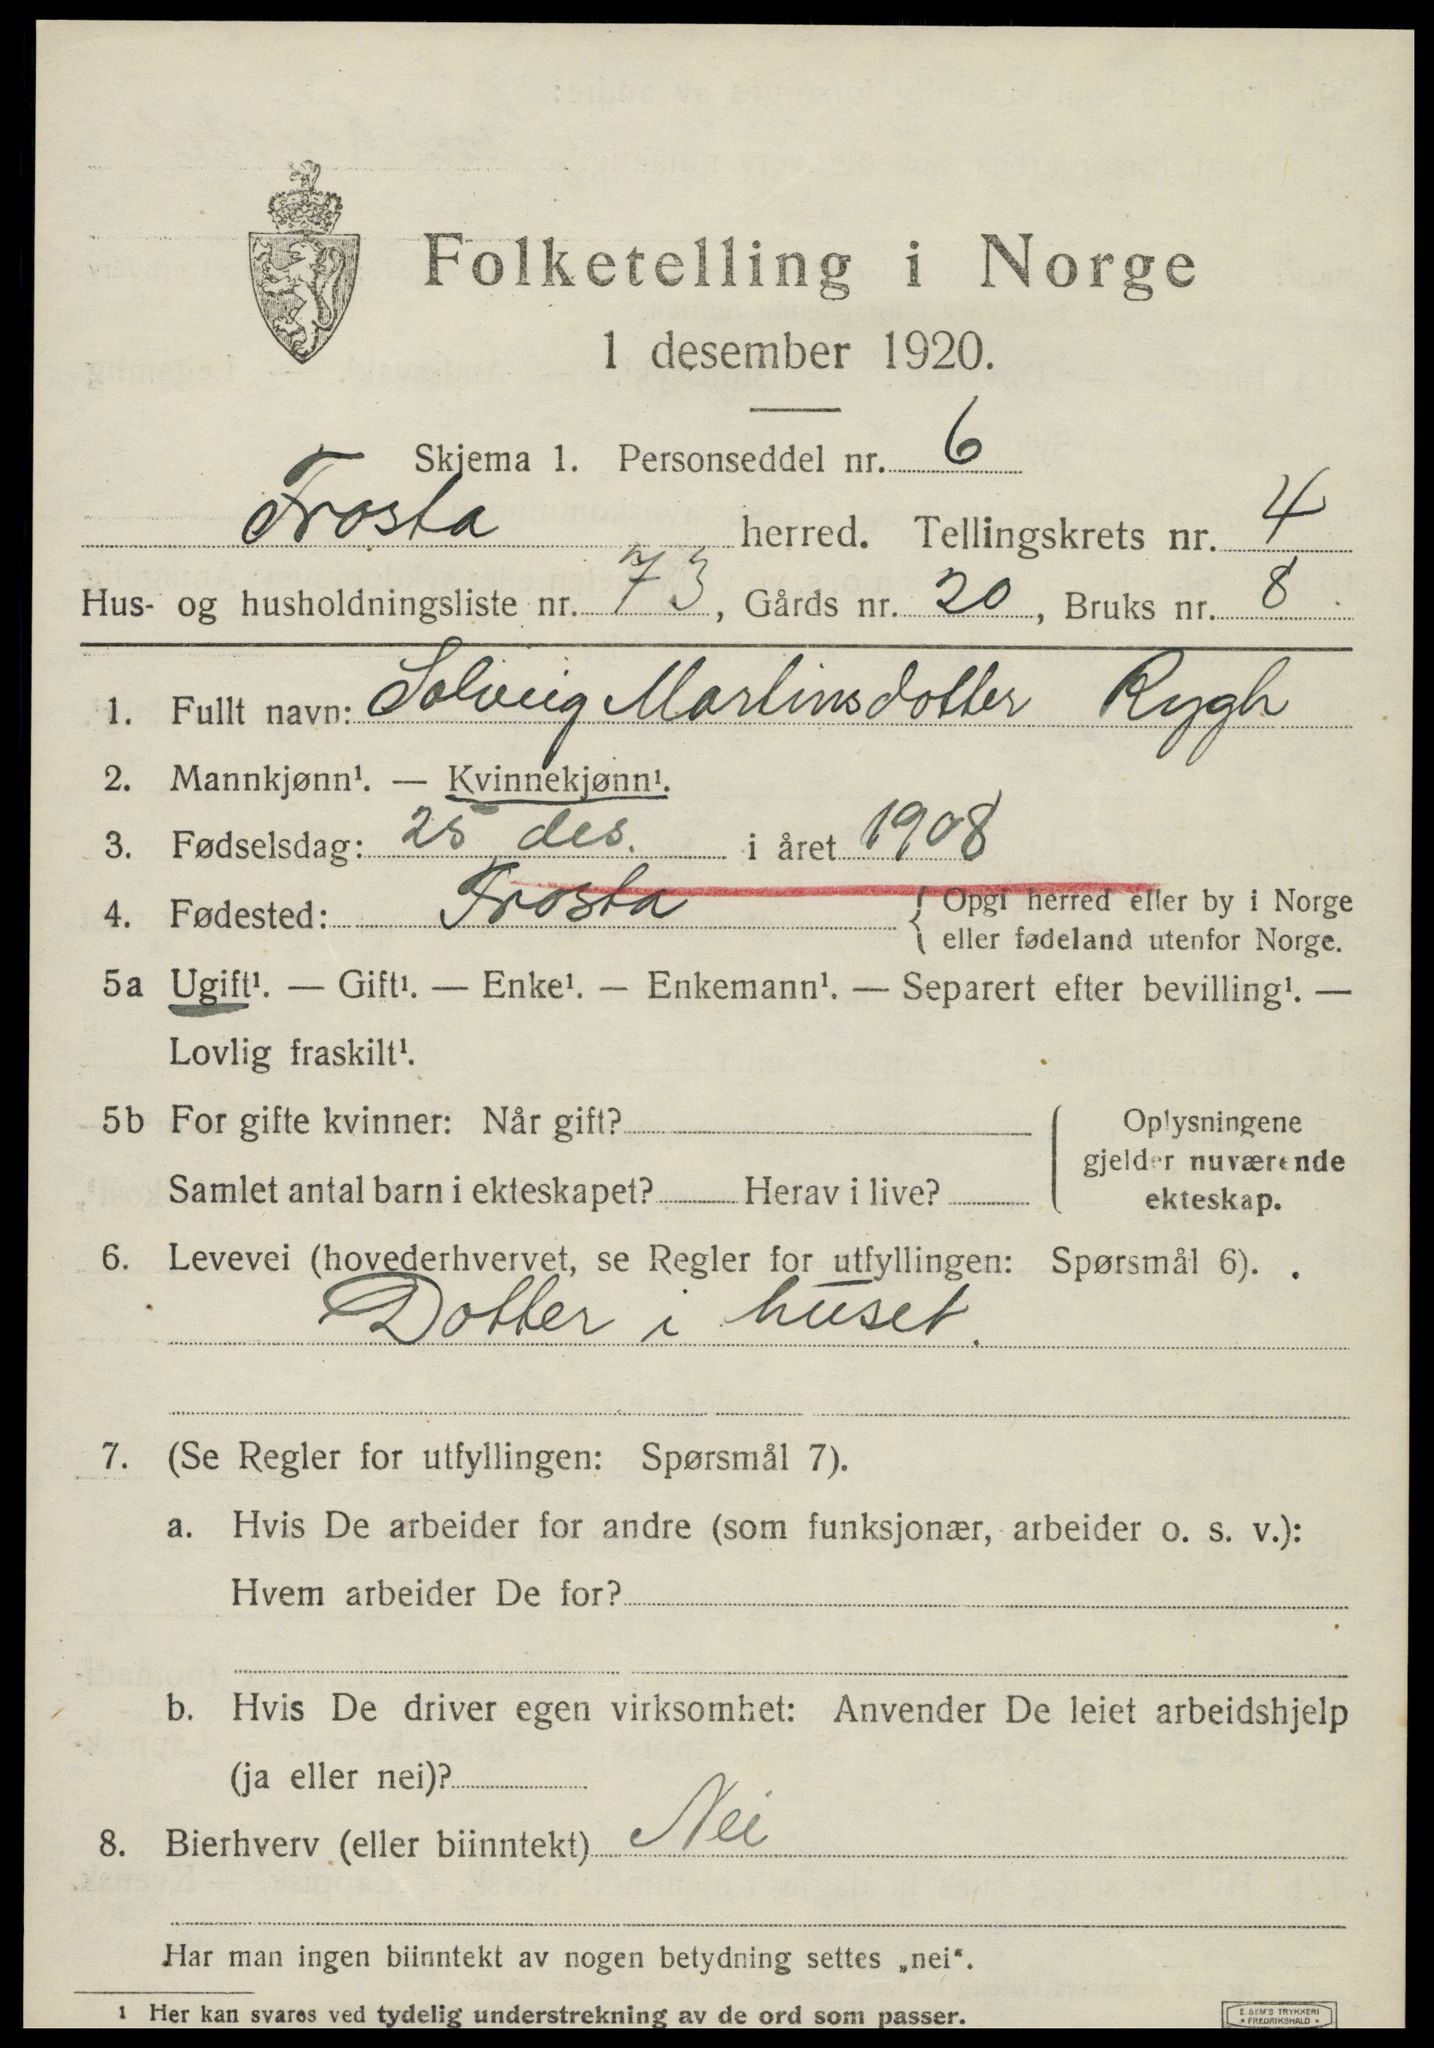 Folketelling i Norge
1 desember 1920.
Skjema 1. Personseddel nr. 6
Frosta herred. Tellingskrets nr. 4
Hus- og husholdningsliste nr. 73, Gårds nr. 20, Bruks nr. 8
1. Fullt navn: Solveig Martinsdotter Rygh
2. Mannkjønn¹. — Kvinnekjønn¹.
3. Fødselsdag: 25 des. i året 1908
4. Fødested: Frosta { Opgi herred eller by i Norge
eller fødeland utenfor Norge.
5a Ugift¹. — Gift¹. — Enke¹. — Enkemann¹. — Separert efter bevilling¹. —
Lovlig fraskilt¹.
5b For gifte kvinner: Når gift?
Samlet antal barn i ekteskapet? Herav i live?
Oplysningene
gjelder nuværende
ekteskap.
6. Levevei (hovederhvervet, se Regler for utfyllingen: Spørsmål 6).
Dotter i huset.
7. (Se Regler for utfyllingen: Spørsmål 7).
a. Hvis De arbeider for andre (som funksjonær, arbeider o. s. v.):
Hvem arbeider De for?
b. Hvis De driver egen virksomhet: Anvender De leiet arbeidshjelp
(ja eller nei)?
8. Bierhverv (eller biinntekt) Nei
Har man ingen biinntekt av nogen betydning settes „nei“.
¹ Her kan svares ved tydelig understrekning av de ord som passer.
E. SEM'S TRYKKERI
* FREDRIKSHALD *